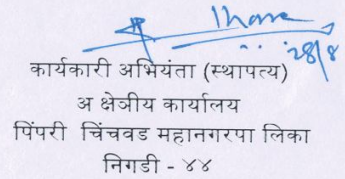 28/8
कार्यकारी अभियंता (स्थापत्य)
अ क्षेत्रीय कार्यालय
पिंपरी चिंचवड महानगरपा लिका
निगडी - ४४